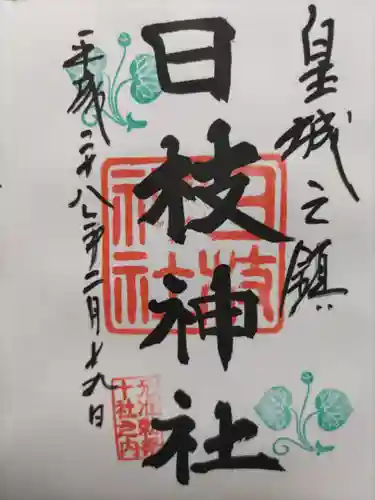 皇城之鎮
日枝神社
平成二十八年二月十九日
日枝神社
十社之内